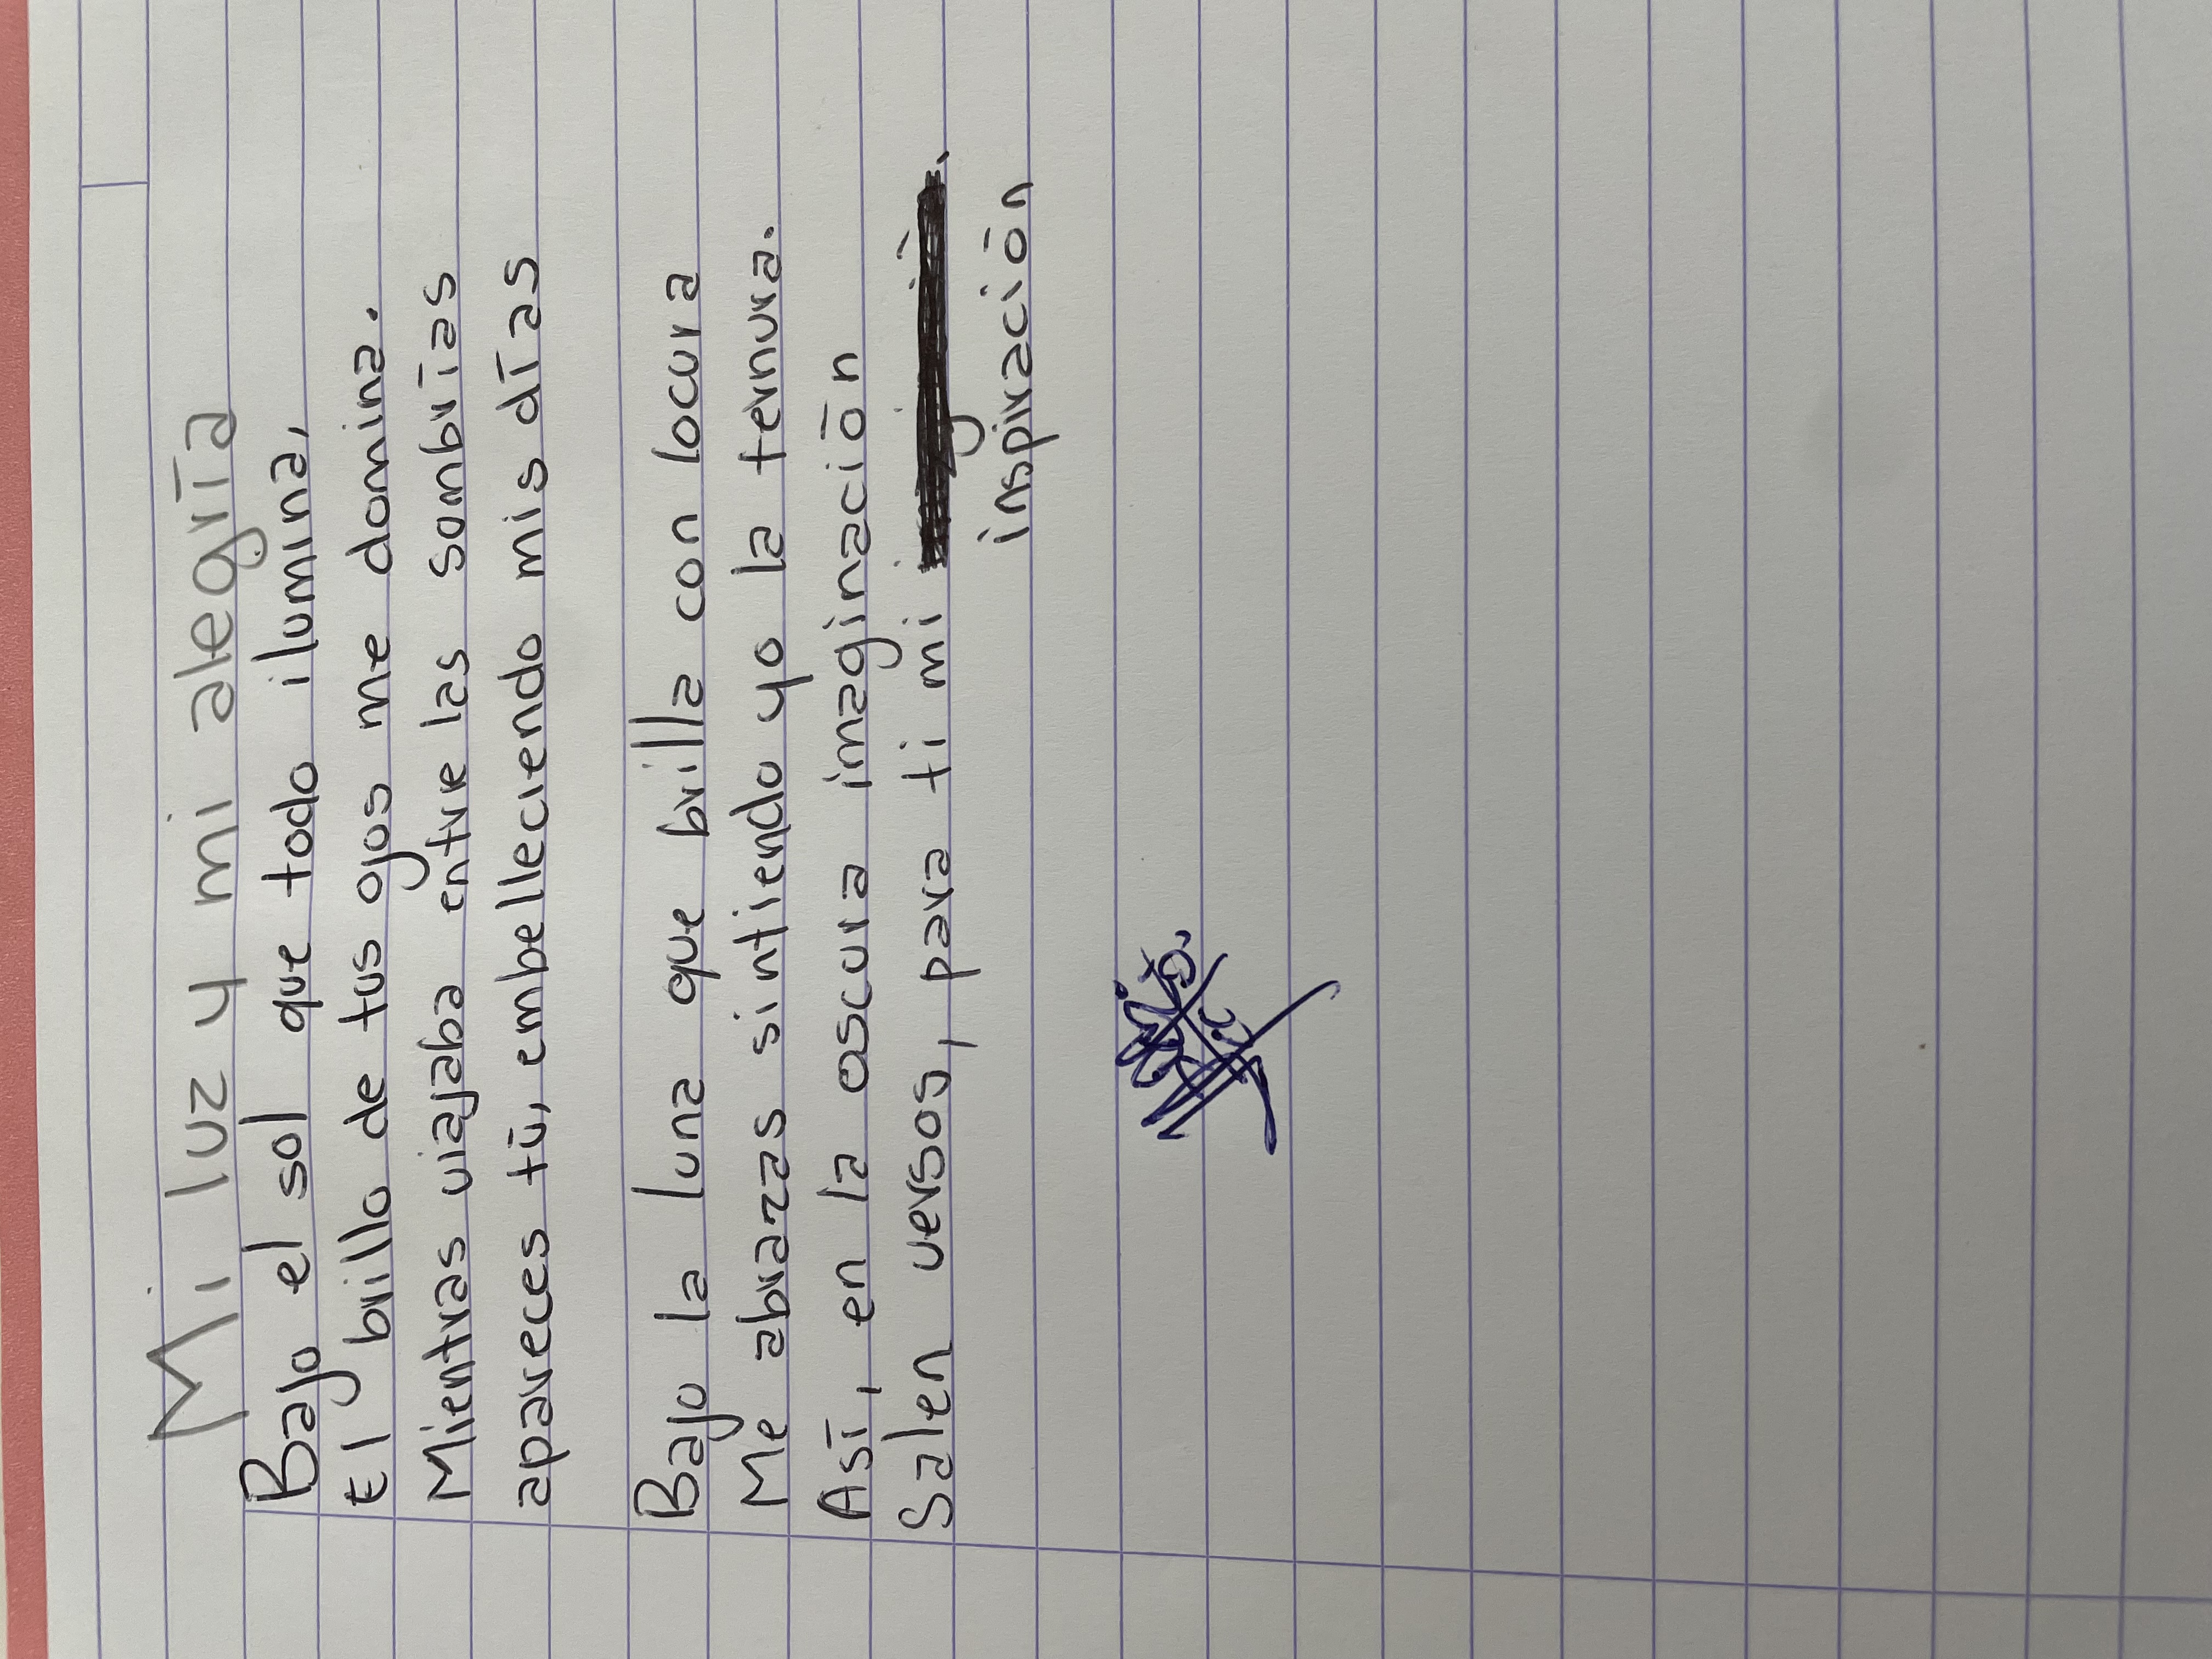 Mi luz y mi alegría
Bajo el sol que todo ilumina,
El brillo de tus ojos me domina.
Mientras viajaba entre las sombrías
apareces tú, embelleciendo mis días
Bajo la luna que brilla con locura
Me abrazas sintiendo yo la ternura.
Así, en la oscura imaginación
Salen versos, para ti mi .
inspiración